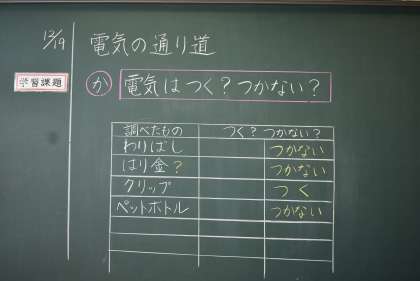 12/19
電気の通り道
学習課題
か 電気はつく？つかない？
調べたもの つく？ つかない？
わりばし つかない
はり金？ つかない
クリップ つく
ペットボトル つかない